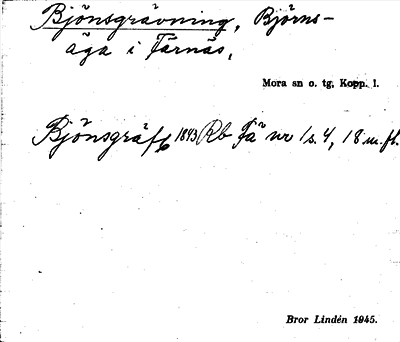 Bjönsgrävning, Björns-
äga i Färnäs,
Mora sn o. tg, Kopp. l.
Bjönsgräf 1843 Rb Fä nr 1 s. 4, 18 m. fl.
Bror Lindén 1945.